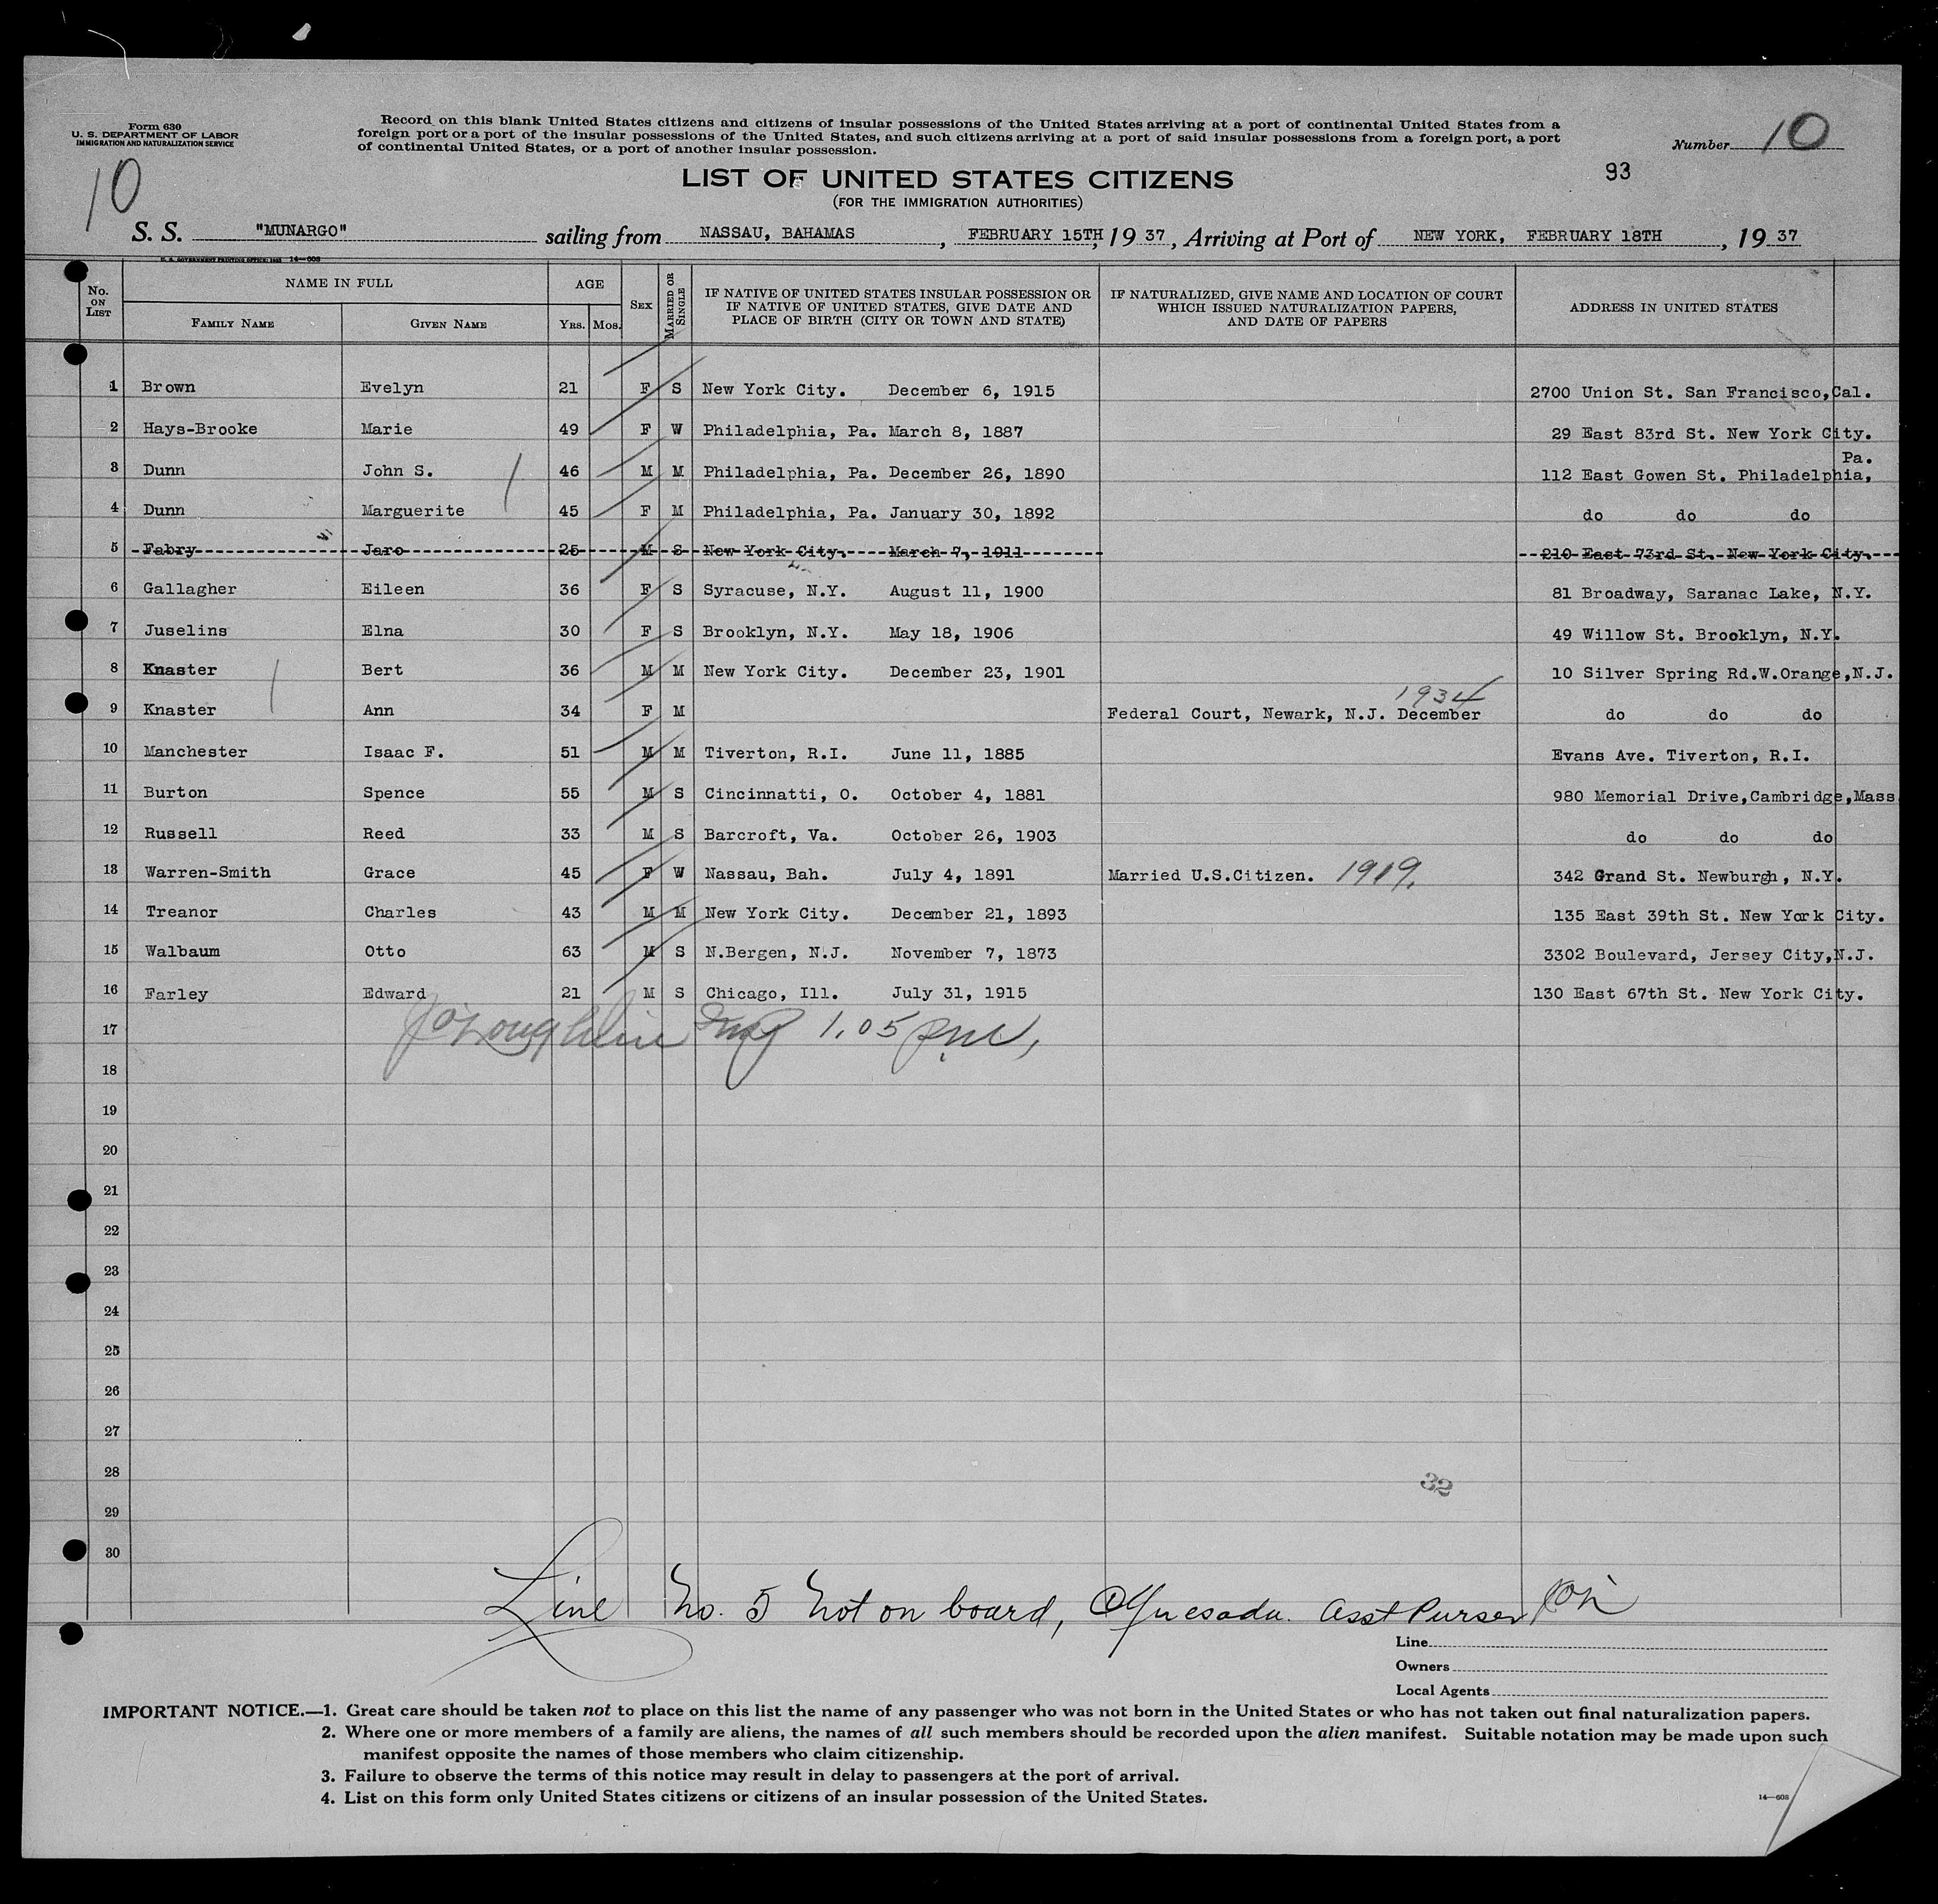 Form 630
U. S. DEPARTMENT OF LABOR
IMMIGRATION AND NATURALIZATION SERVICE
Record on this blank United States citizens and citizens of insular possessions of the United States arriving at a port of continental United States from a
foreign port or a port of the insular possessions of the United States, and such citizens arriving at a port of said insular possessions from a foreign port, a port
of continental United States, or a port of another insular possession.
Number 10
10
93
LIST OF UNITED STATES CITIZENS
(FOR THE IMMIGRATION AUTHORITIES)
S. S. "MUNARGO" sailing from NASSAU, BAHAMAS, FEBRUARY 15TH, 19 37, Arriving at Port of NEW YORK, FEBRUARY 18TH, 19 37
U. S. GOVERNMENT PRINTING OFFICE: 14—608
No. ON LIST
NAME IN FULL
FAMILY NAME GIVEN NAME
AGE
YRS. MOS.
SEX
MARRIED OR SINGLE
IF NATIVE OF UNITED STATES INSULAR POSSESSION OR
IF NATIVE OF UNITED STATES, GIVE DATE AND
PLACE OF BIRTH (CITY OR TOWN AND STATE)
IF NATURALIZED, GIVE NAME AND LOCATION OF COURT
WHICH ISSUED NATURALIZATION PAPERS,
AND DATE OF PAPERS
ADDRESS IN UNITED STATES
1 Brown Evelyn 21 F S New York City. December 6, 1915 2700 Union St. San Francisco,Cal.
2 Hays-Brooke Marie 49 F W Philadelphia, Pa. March 8, 1887 29 East 83rd St. New York City.
3 Dunn John S. 46 M M Philadelphia, Pa. December 26, 1890 112 East Gowen St. Philadelphia, Pa.
4 Dunn Marguerite 45 F M Philadelphia, Pa. January 30, 1892 do do do
5 Fabry Jaro 25 M S New York City. March 7, 1911 210 East 73rd St. New York City.
6 Gallagher Eileen 36 F S Syracuse, N.Y. August 11, 1900 81 Broadway, Saranac Lake, N.Y.
7 Juselins Elna 30 F S Brooklyn, N.Y. May 18, 1906 49 Willow St. Brooklyn, N.Y.
8 Knaster Bert 36 M M New York City. December 23, 1901 10 Silver Spring Rd.W.Orange,N.J.
9 Knaster Ann 34 F M Federal Court, Newark, N.J. December 1934 do do do
10 Manchester Isaac F. 51 M M Tiverton, R.I. June 11, 1885 Evans Ave. Tiverton, R.I.
11 Burton Spence 55 M S Cincinnatti, O. October 4, 1881 980 Memorial Drive,Cambridge,Mass
12 Russell Reed 33 M S Barcroft, Va. October 26, 1903 do do do
13 Warren-Smith Grace 45 F W Nassau, Bah. July 4, 1891 Married U.S.Citizen. 1919. 342 Grand St. Newburgh, N.Y.
14 Treanor Charles 43 M M New York City. December 21, 1893 135 East 39th St. New York City.
15 Walbaum Otto 63 M S N.Bergen, N.J. November 7, 1873 3302 Boulevard, Jersey City,N.J.
16 Farley Edward 21 M S Chicago, Ill. July 31, 1915 130 East 67th St. New York City.
17 1.05 pm,
18
19
20
21
22
23
24
25
26
27
28
32
29
30
Line No. 5 Not on board, Quesada. Asst Purser
Line
Owners
Local Agents
IMPORTANT NOTICE.—1. Great care should be taken not to place on this list the name of any passenger who was not born in the United States or who has not taken out final naturalization papers.
2. Where one or more members of a family are aliens, the names of all such members should be recorded upon the alien manifest. Suitable notation may be made upon such
manifest opposite the names of those members who claim citizenship.
3. Failure to observe the terms of this notice may result in delay to passengers at the port of arrival.
4. List on this form only United States citizens or citizens of an insular possession of the United States.
14—608